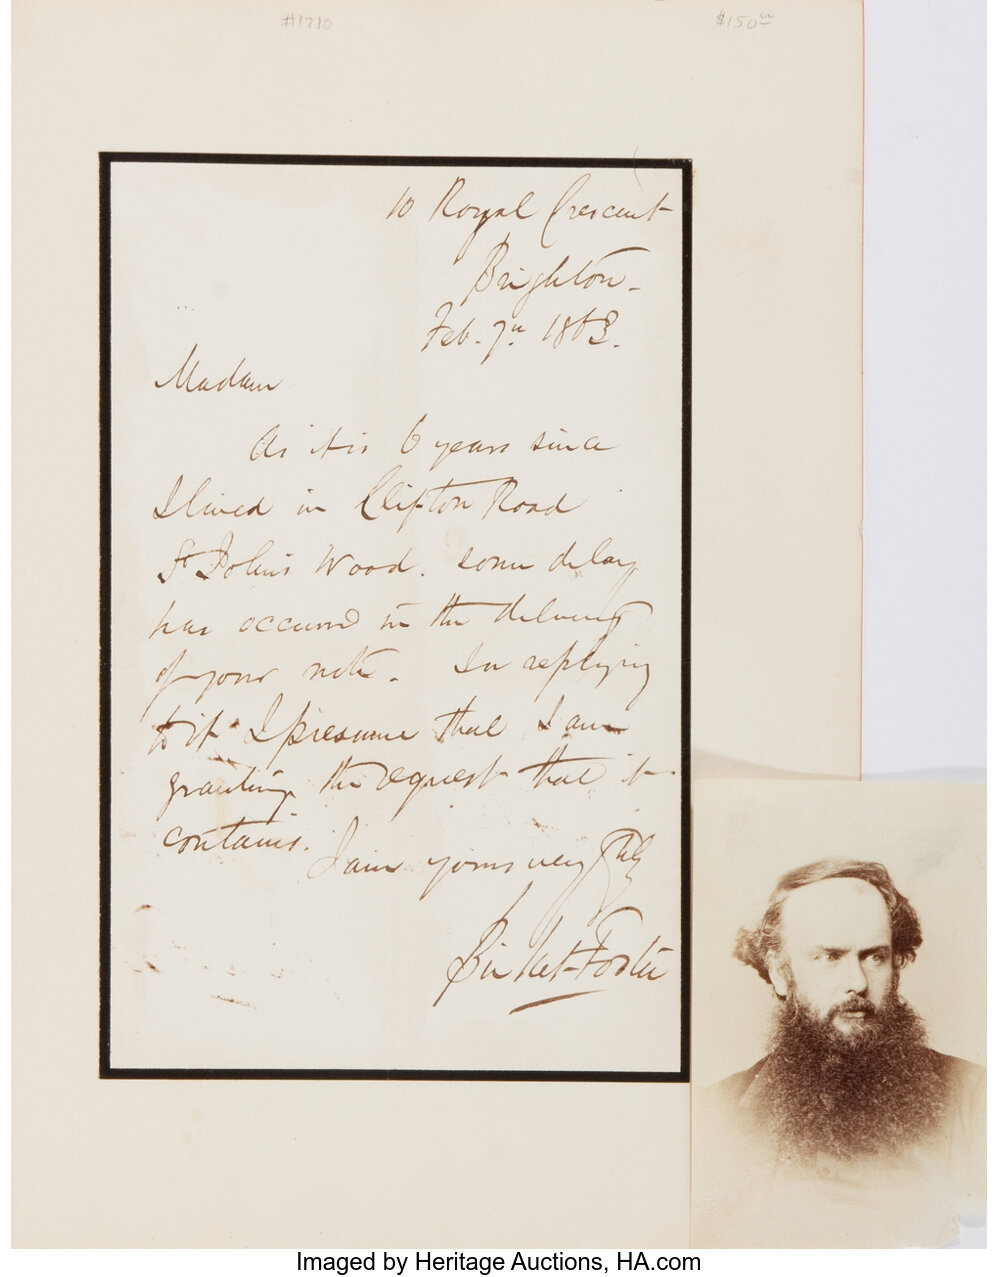 #1710
$150.00
10 Royal Crescent
Brighton -
Feb. 7th 1863.
Madam
As it is 6 years since
I lived in Clifton Road
St Johns Wood. some delay
has occured in the delivery
of your note. In replying
to it I presume that I am
granting the request that it
contains.
I am yours very truly
Birket Foster
Imaged by Heritage Auctions, HA.com